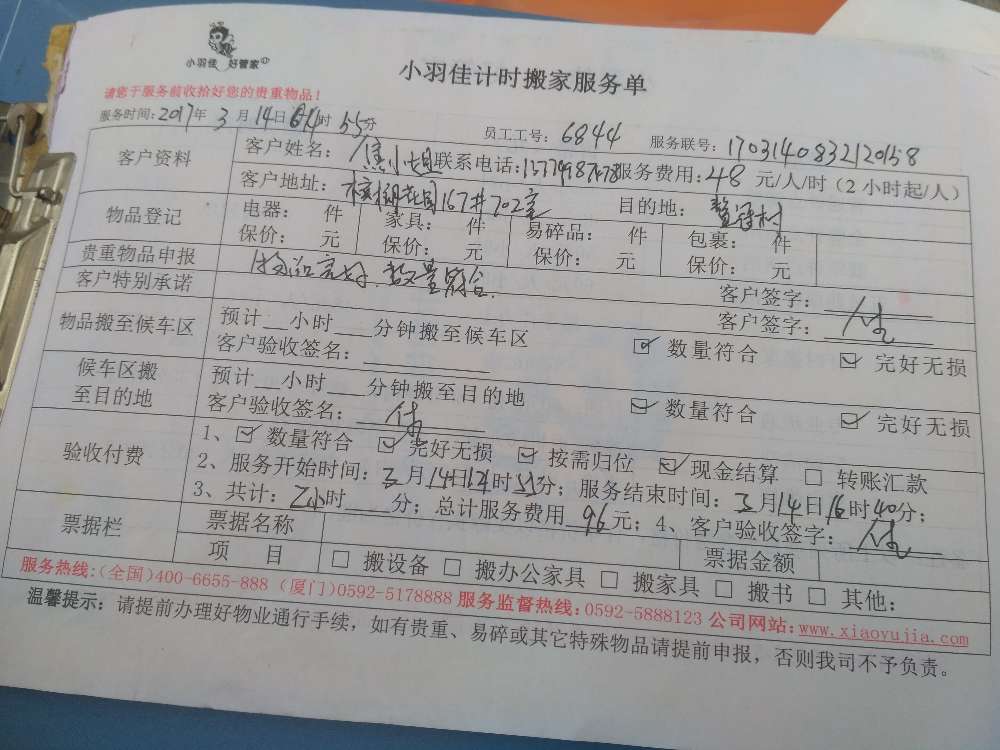 小羽佳 好管家
小羽佳计时搬家服务单
请您于服务前收拾好您的贵重物品！
服务时间：2017年 3月14日 时55分 员工工号：6844 服务联号：1703140832120158
客户资料 客户姓名： 小姐 联系电话： 服务费用：48 元/人/时（2小时起/人）
客户地址： 花园167#702室 目的地： 村
物品登记 电器： 件 家具： 件 易碎品： 件 包裹： 件
保价： 元 保价： 元 保价： 元 保价： 元
贵重物品申报 物品完好.数量符合. 客户签字：
客户特别承诺 客户签字：
物品搬至候车区 预计__小时___分钟搬至候车区 ☑ 数量符合 ☑ 完好无损
客户验收签名：
候车区搬至目的地 预计__小时___分钟搬至目的地 ☑ 数量符合 ☑ 完好无损
客户验收签名：
验收付费 1、☑ 数量符合 ☑ 完好无损 ☑ 按需归位 ☑ 现金结算 □ 转账汇款
2、服务开始时间：3月14日14时55分；服务结束时间：3月14日16时40分；
3、共计：2小时____分；总计服务费用 96 元；4、客户验收签字：
票据栏 票据名称 票据金额
项 目 □ 搬设备 □ 搬办公家具 □ 搬家具 □ 搬书 □ 其他：
服务热线：(全国)400-6655-888 (厦门)0592-5178888 服务监督热线：0592-5888123 公司网站：www.xiaoyujia.com
温馨提示：请提前办理好物业通行手续，如有贵重、易碎或其它特殊物品请提前申报，否则我司不予负责。